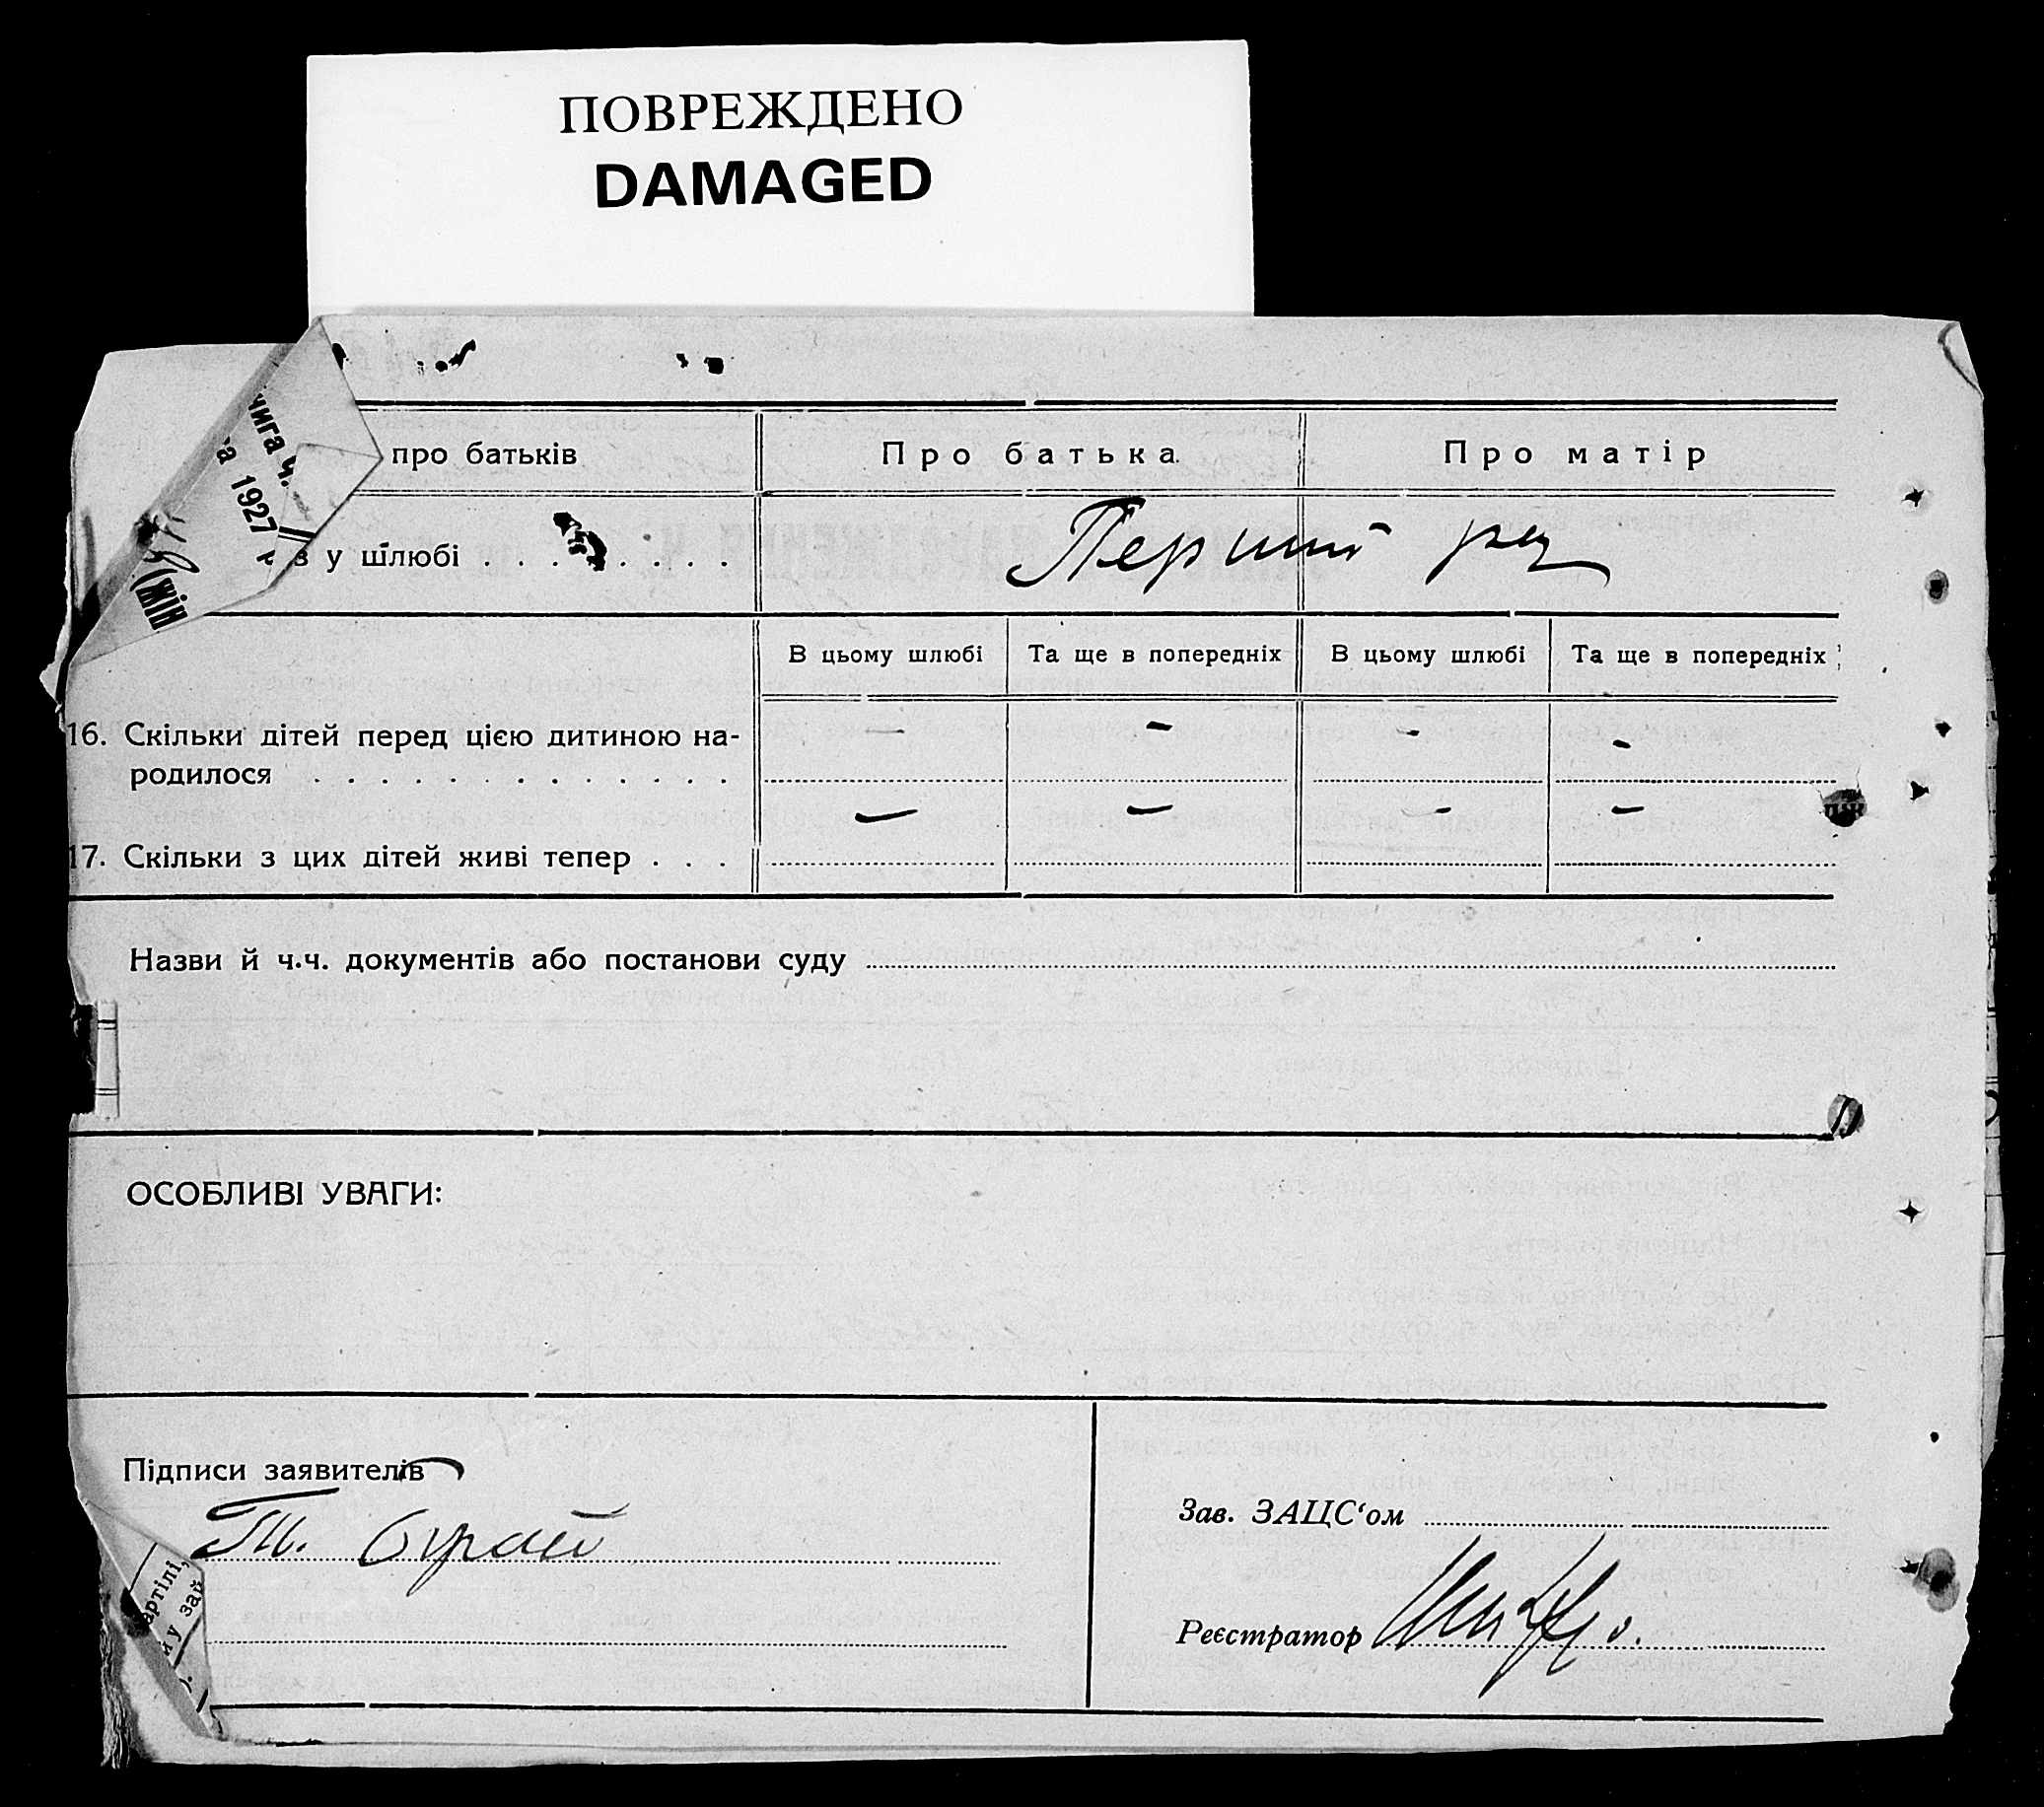 ПОВРЕЖДЕНО
DAMAGED
про батьків
Про батька
Про матір
чига ч.
1927
(жін
в у шлюбі . . . . . . . . .
Перший раз
В цьому шлюбі
Та ще в попередніх
В цьому шлюбі
Та ще в попередніх
16. Скільки дітей перед цією дитиною на-
родилося . . . . . . . . . . . . .
- - - -
17. Скільки з цих дітей живі тепер . . .
- - - -
Назви й ч.ч. документів або постанови суду
ОСОБЛИВІ УВАГИ:
Підписи заявителів
Т. Бурдей
артілі,
му зай
Зав. ЗАЦС‘ом
Реєстратор